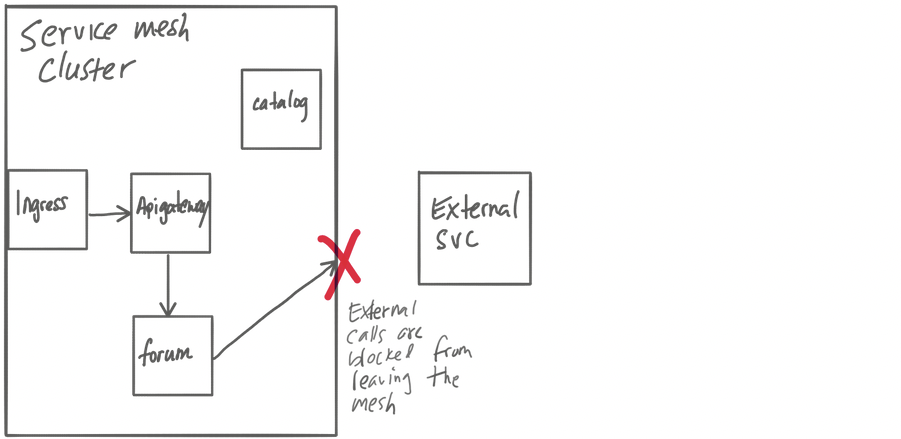 Service mesh
Cluster
catalog
Ingress
Apigateway
forum
External
svc
External
calls are
blocked from
leaving the
mesh